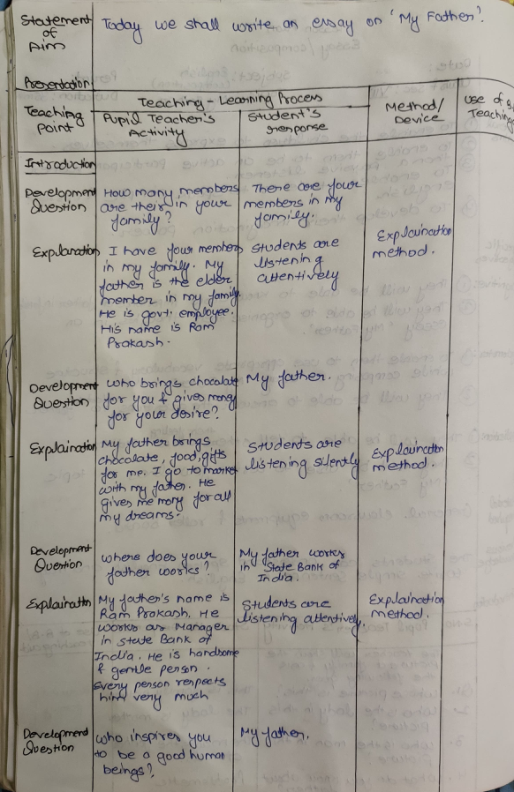 Statement of Aim
Today we shall write an essay on 'My Father'.
Presentation
Teaching Point
Teaching - Learning Process
Pupil Teacher's Activity
Student's response
Method/ Device
Use of
Teaching
Introduction
Development Question
How many members
are their in your
family?
There are four
members in my
family.
Explanation
I have four members
in my family. My
father is the elder
member in my family
He is govt. employee.
His name is Ram
Prakash.
Students are
listening
attentively
Explaination
method.
Development Question
who brings chocolate
for you & gives money
for your desire?
My father.
Explaination
My father brings
chocolate, food, gifts
for me. I go to market
with my father. He
gives me mony for all
my dreams.
Students are
listening silently
Explaination
method.
Development Question
where does your
father works?
My father works
in State Bank of
India.
Explaination
My father's name is
Ram Prakash. He
works as Manager
in state Bank of
India. He is handsome
& gentle person.
Every person respects
him very much
Students are
listening attentively,
Explaination
method.
Development Question
who inspires you
to be a good human
beings?
My father.